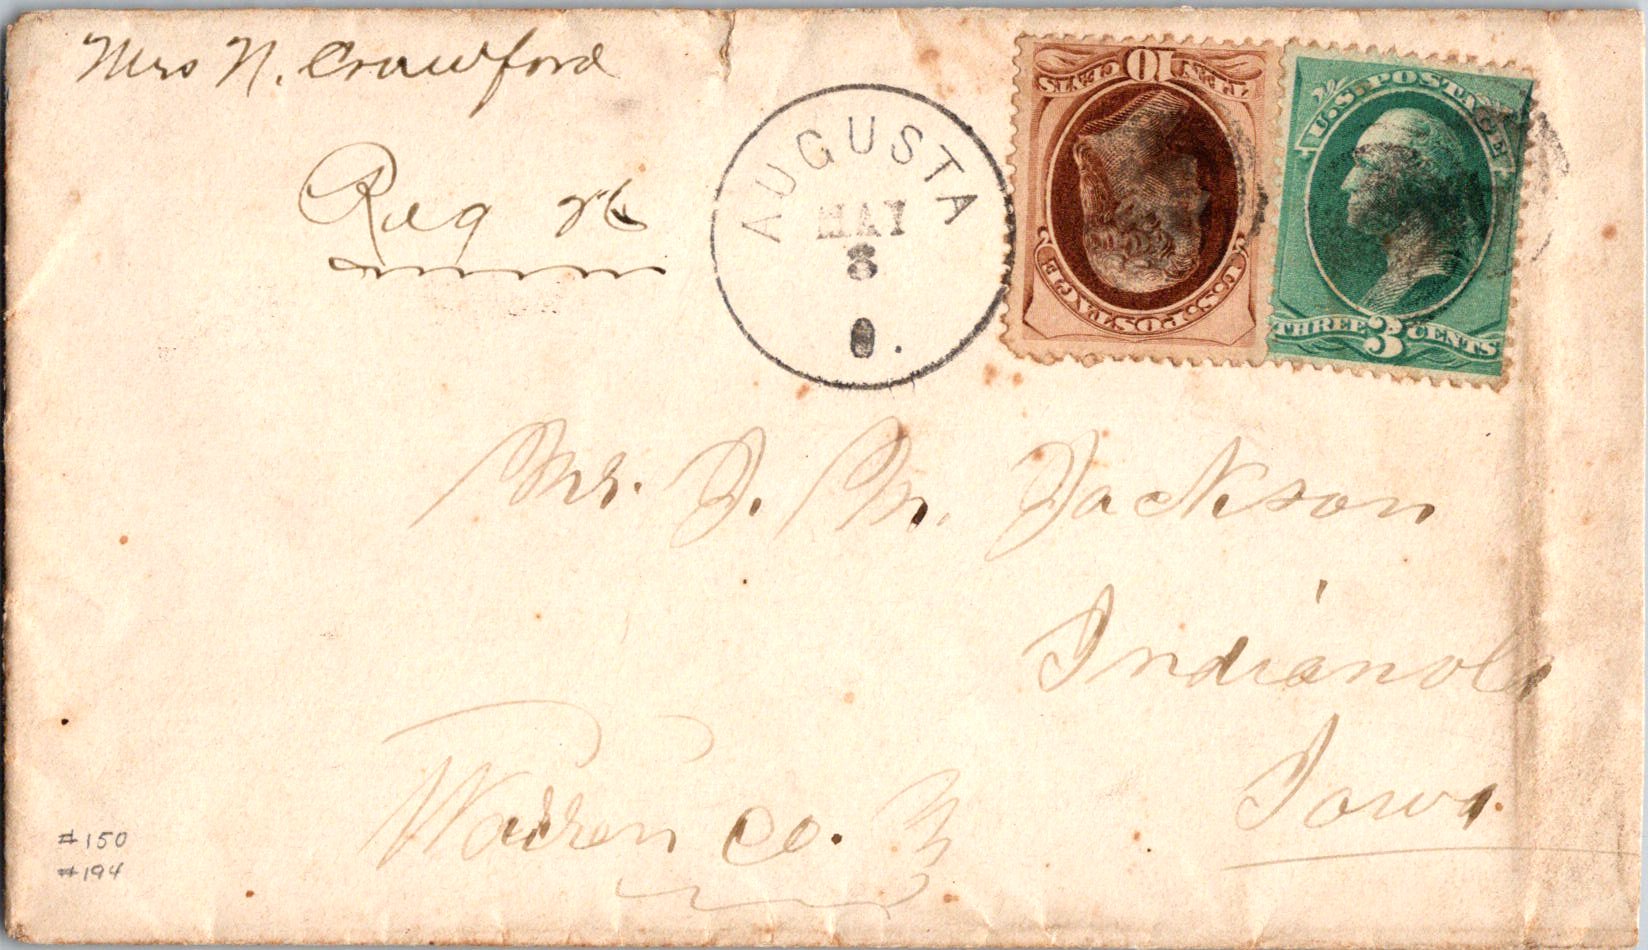 Mrs N. Crawford
Reg 26
AUGUSTA
MAY
8
O.
TEN 10 CENTS
U.S. POSTAGE
U.S. POSTAGE
THREE 3 CENTS
Mr. J. M. Jackson
Indianola
Iowa.
Warren Co.
#150
#194